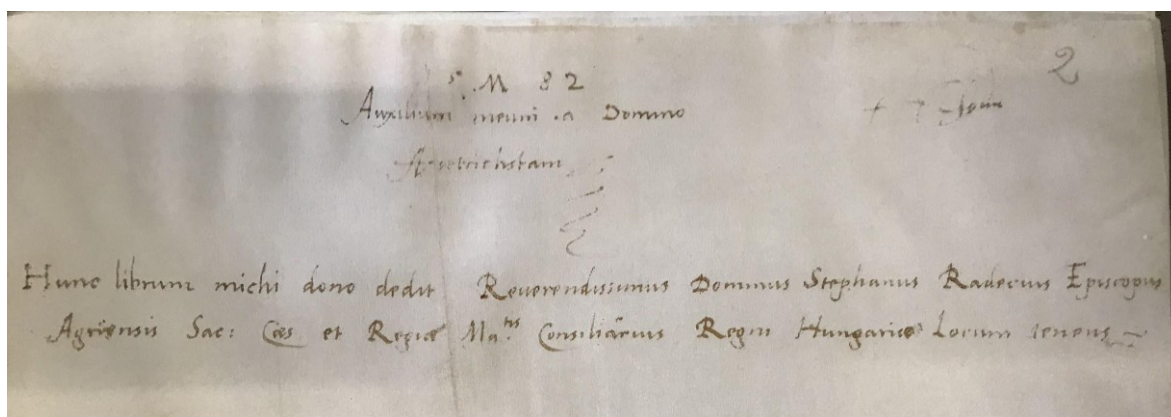 2
M 82
Auxilium meum a Domino
Hunc librum michi dono dedit Reuerendissimus Dominus Stephanus Radecius Episcopus
Agriensis Sac: Cæs et Regiæ Ma.tis Consiliarius Regni Hungariæ Locum tenens